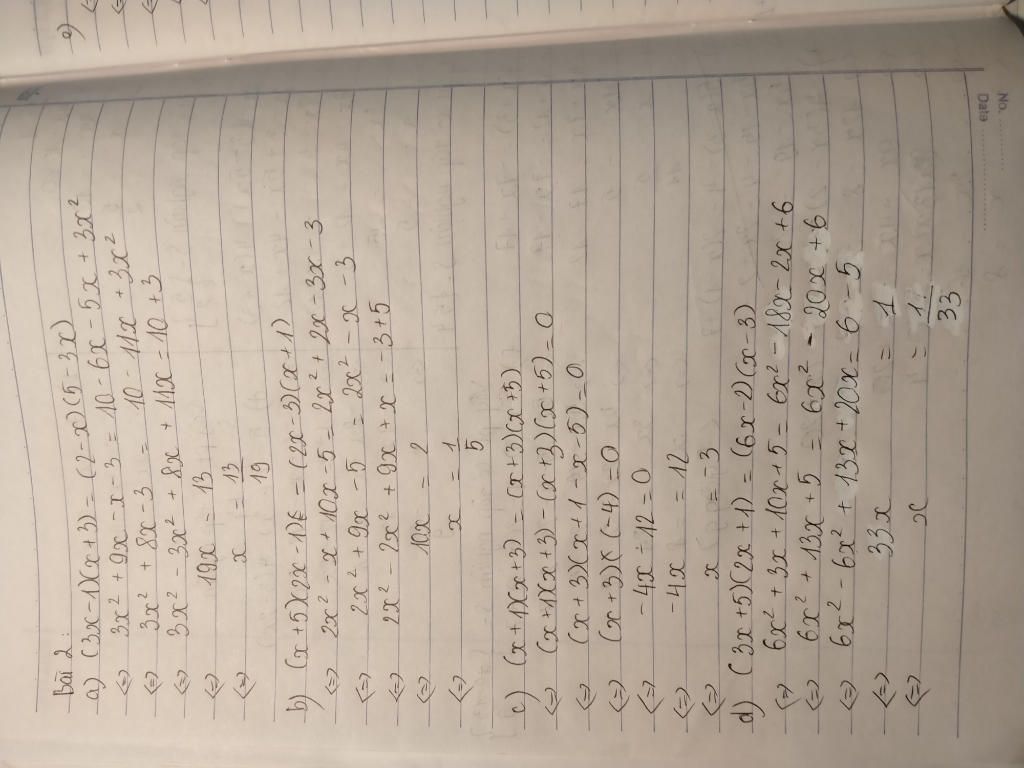 No. ............
Date ............
bài 2:
a) (3x-1)(x+3) = (2-x)(5-3x)
<=> 3x² + 9x - x - 3 = 10 - 6x - 5x + 3x²
<=> 3x² + 8x - 3 = 10 - 11x + 3x²
<=> 3x² - 3x² + 8x + 11x = 10 + 3
<=> 19x = 13
<=> x = 13/19
b) (x+5)(2x-1) = (2x-3)(x+1)
<=> 2x² - x + 10x - 5 = 2x² + 2x - 3x - 3
<=> 2x² + 9x - 5 = 2x² - x - 3
<=> 2x² - 2x² + 9x + x = -3+5
<=> 10x = 2
<=> x = 1/5
c) (x+1)(x+3) = (x+3)(x+5)
<=> (x+1)(x+3) - (x+3)(x+5) = 0
<=> (x+3)(x+1-x-5) = 0
<=> (x+3)(-4) = 0
<=> -4x - 12 = 0
<=> -4x = 12
<=> x = -3
d) (3x+5)(2x+1) = (6x-2)(x-3)
<=> 6x² + 3x + 10x + 5 = 6x² - 18x - 2x + 6
<=> 6x² + 13x + 5 = 6x² - 20x + 6
<=> 6x² - 6x² + 13x + 20x = 6 - 5
<=> 33x = 1
<=> x = 1/33
e)